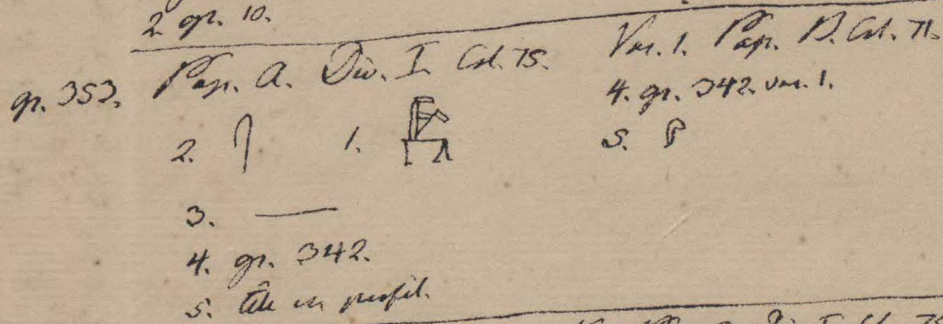 2. gr. 10.
gr. 353. Pap. A. Div. I. Col. 75.
2. 1.
3.
4. gr. 342.
5. tête en profil.
Var. 1. Pap. B. Col. 71.
4. gr. 342. var. 1.
5.